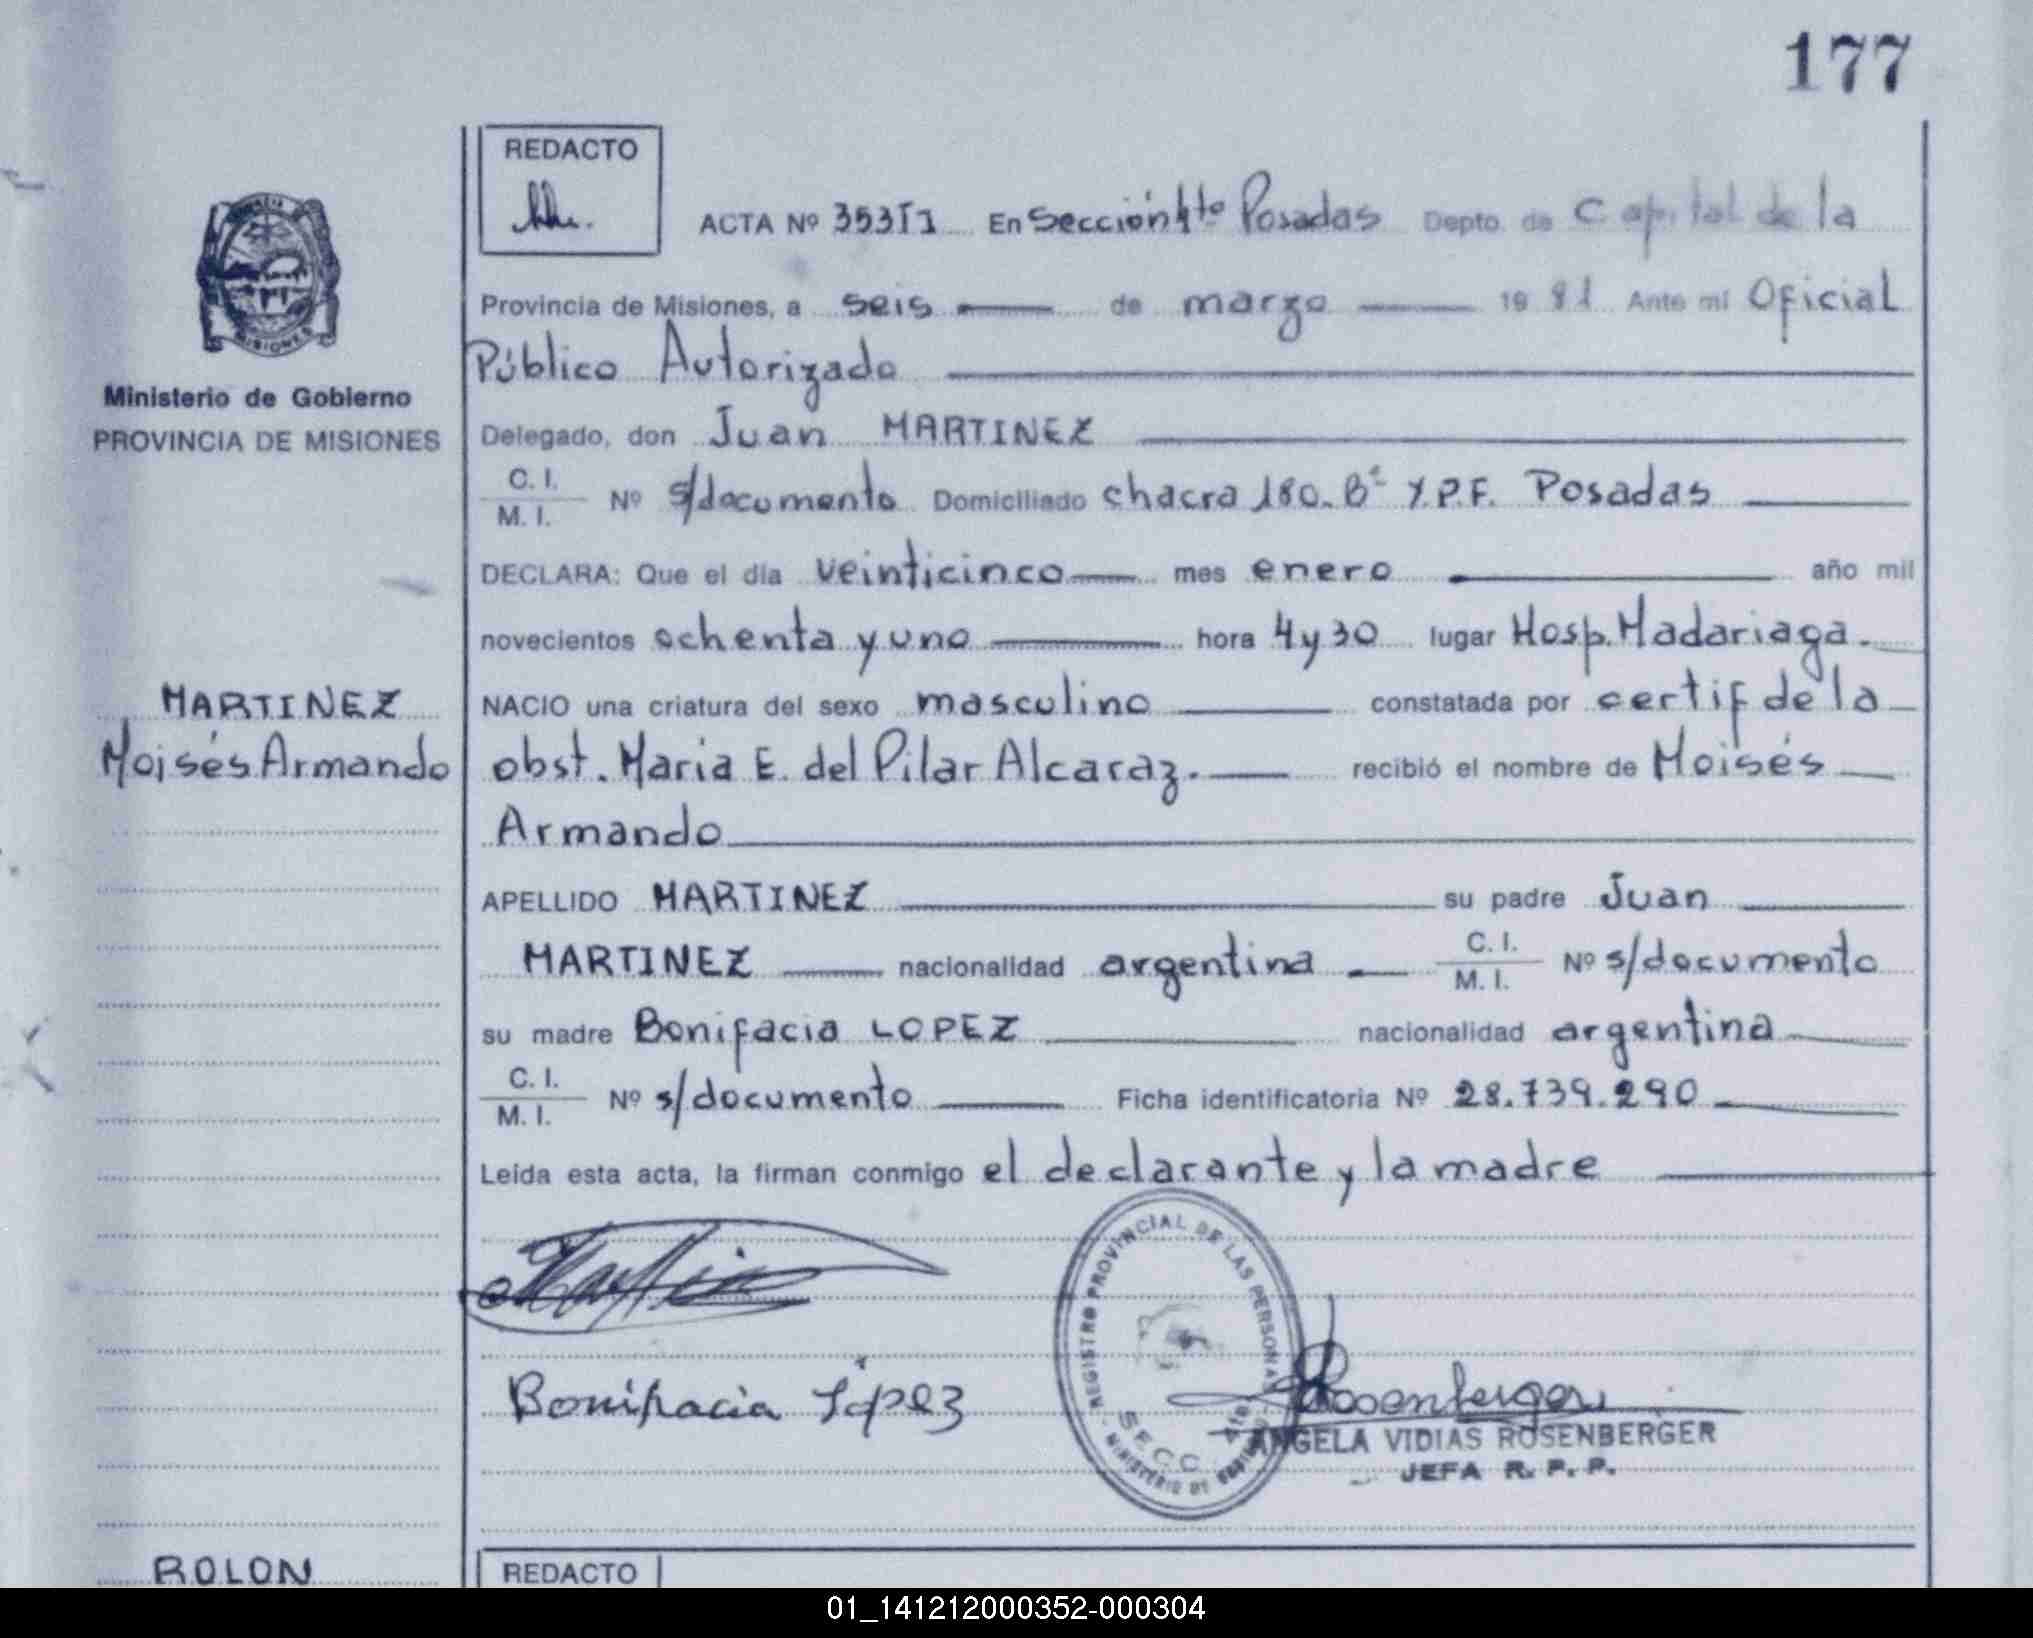 177
REDACTO
ACTA Nº 353TI En Sección 4to Posadas Depto. de Capital de la
Provincia de Misiones, a seis de marzo 1981 Ante mí Oficial
Público Autorizado
Ministerio de Gobierno
PROVINCIA DE MISIONES
Delegado, don Juan MARTINEZ
C. I.
M. I. Nº s/documento Domiciliado chacra 180. Bº Y.P.F. Posadas
DECLARA: Que el día veinticinco mes enero año mil
novecientos ochenta y uno hora 4 y 30 lugar Hosp. Madariaga.
MARTINEZ
Moisés Armando
NACIO una criatura del sexo masculino constatada por certif de la
obst. Maria E. del Pilar Alcaraz. recibió el nombre de Moisés
Armando
APELLIDO MARTINEZ su padre Juan
MARTINEZ nacionalidad argentina C. I. M. I. Nº s/documento
su madre Bonifacia LOPEZ nacionalidad argentina
C. I.
M. I. Nº s/documento Ficha identificatoria Nº 28.739.290
Leída esta acta, la firman conmigo el declarante y la madre
Bonifacia López
REGISTRO PROVINCIAL DE LAS PERSONAS
SECC. 4ta
MINISTERIO DE GOBIERNO
Rosenberger
ANGELA VIDIAS ROSENBERGER
JEFA R. P. P.
ROLON
REDACTO
01_141212000352-000304